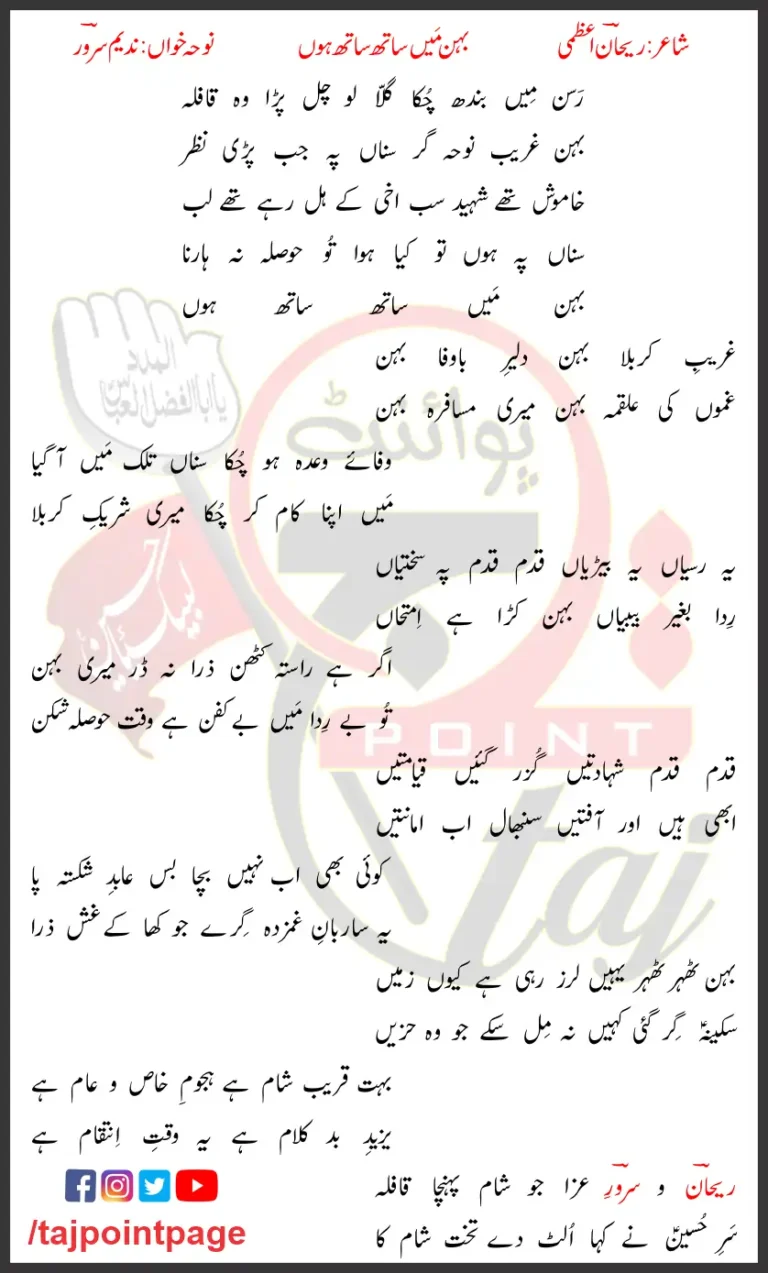 شاعر: ریحانؔ اعظمی بہن مَیں ساتھ ساتھ ہوں نوحہ خواں: ندیم سرورؔ
رَسن مِیں بندھ چُکا گلّا لو چل پڑا وہ قافلہ
بہن غریب نوحہ گر سناں پہ جب پڑی نظر
خاموش تھے شہید سب اخی کے ہل رہے تھے لب
سناں پہ ہوں تو کیا ہوا تُو حوصلہ نہ ہارنا
بہن مَیں ساتھ ساتھ ہوں
غریبِ کربلا بہن دلیرِ باوفا بہن
غموں کی علقمہ بہن میری مسافرہ بہن
وفائے وعدہ ہو چُکا سناں تلک مَیں آ گیا
مَیں اپنا کام کر چُکا میری شریکِ کربلا
یہ رسیاں یہ بیڑیاں قدم قدم پہ سختیاں
رِدا بغیر بیبیاں بہن کڑا ہے اِمتحاں
اگر ہے راستہ کٹھن ذرا نہ ڈر میری بہن
تُو بے رِدا مَیں بے کفن ہے وقت حوصلہ شکن
قدم قدم شہادتیں گُزر گئیں قیامتیں
ابھی ہیں اور آفتیں سنبھال اب امانتیں
کوئی بھی اب نہیں بچا بس عابدِ شکستہ پا
یہ ساربانِ غمزدہ گِرے جو کھا کے غش ذرا
بہن ٹھہر ٹھہر یہیں لرز رہی ہے کیوں زمیں
سکینہؑ گِر گئی کہیں نہ مِل سکے جو وہ حزیں
بہت قریب شام ہے ہجومِ خاص و عام ہے
یزیدِ بد کلام ہے یہ وقتِ اِنتقام ہے
ریحانؔ و سرورِؔ عزا جو شام پہنچا قافلہ
سَرِ حُسینؑ نے کہا اُلٹ دے تخت شام کا
/tajpointpage
المدد
یا ابا الفضل العباس
پوائنٹ
لبیک یا حسین
تاج
POINT
taj